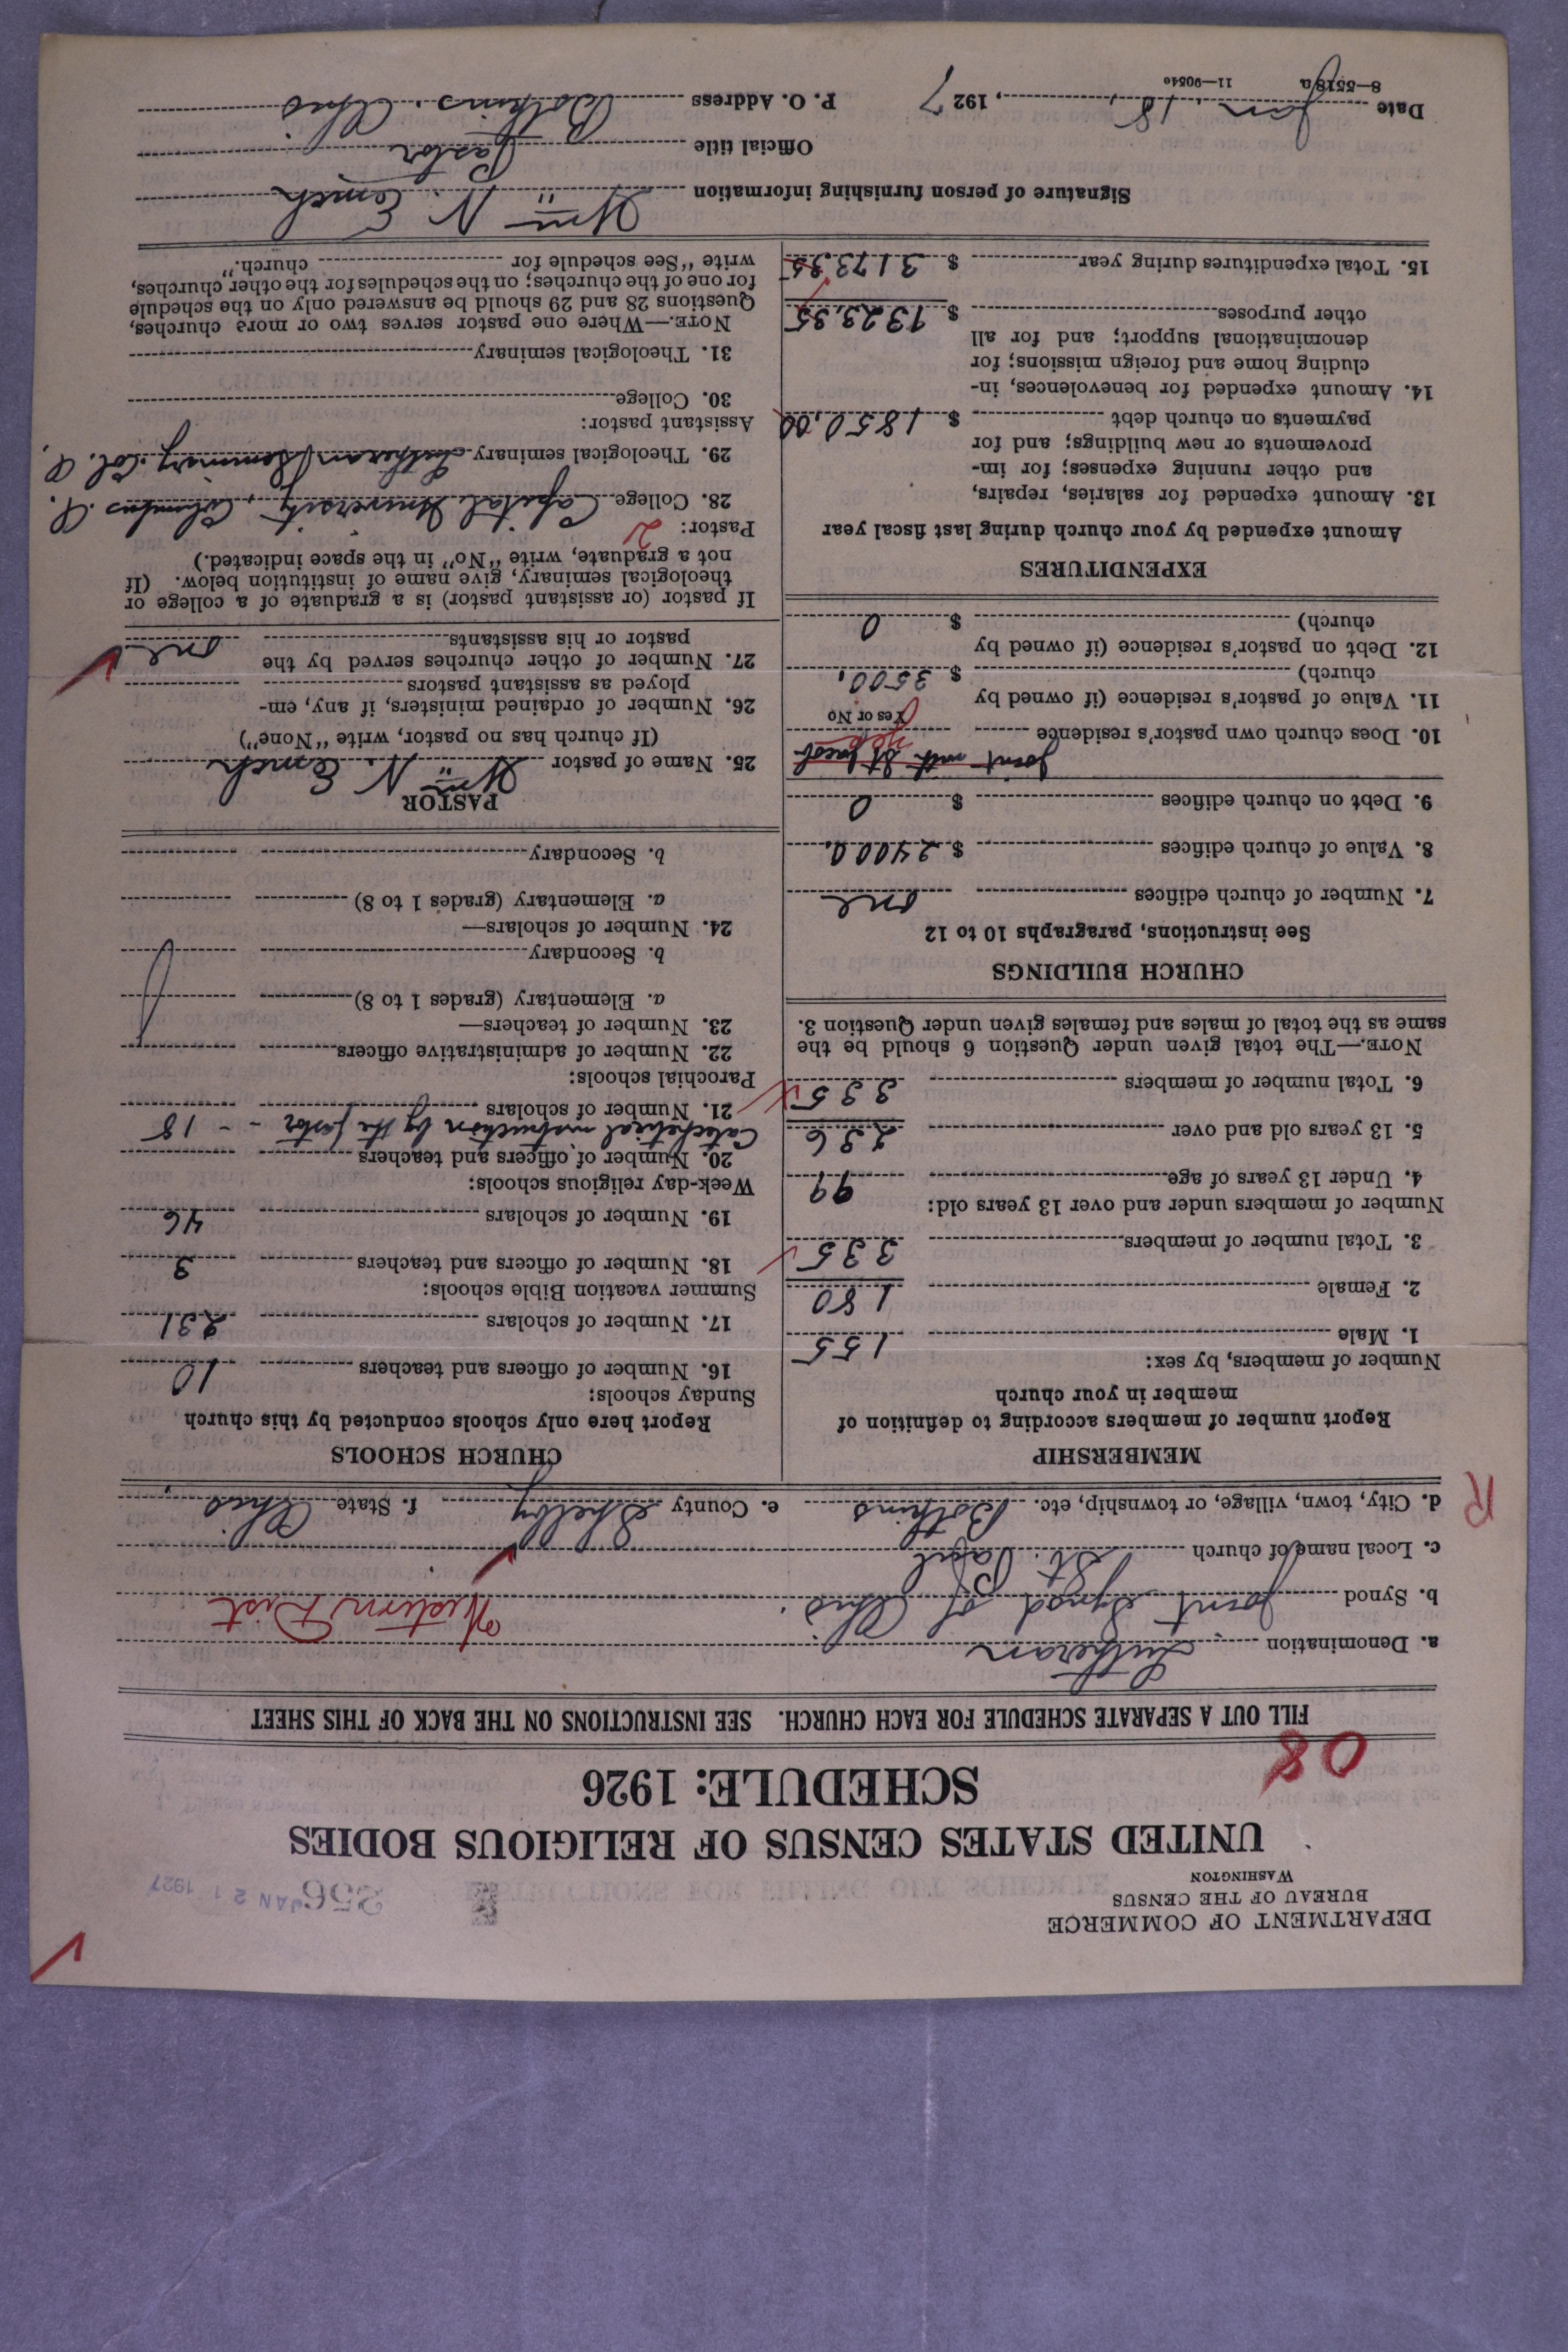 DEPARTMENT OF COMMERCE
BUREAU OF THE CENSUS
WASHINGTON
356 JAN 21 1927
UNITED STATES CENSUS OF RELIGIOUS BODIES
SCHEDULE: 1926
08
FILL OUT A SEPARATE SCHEDULE FOR EACH CHURCH. SEE INSTRUCTIONS ON THE BACK OF THIS SHEET
a. Denomination Lutheran
b. Synod Joint Synod of Ohio. Western Dist
c. Local name of church St. Paul
d. City, town, village, or township, etc. Botkins e. County Shelby f. State Ohio
R
MEMBERSHIP
Report number of members according to definition of member in your church
Number of members, by sex:
1. Male 155
2. Female 180
3. Total number of members 335
Number of members under and over 13 years old:
4. Under 13 years of age 99
5. 13 years old and over 236
6. Total number of members 335
NOTE.—The total given under Question 6 should be the
same as the total of males and females given under Question 3.
CHURCH BUILDINGS
See instructions, paragraphs 10 to 12
7. Number of church edifices one
8. Value of church edifices $ 24000.
9. Debt on church edifices $ 0
Joint with St Jacob
10. Does church own pastor's residence Yes
Yes or No
11. Value of pastor's residence (if owned by
church) $ 3500.
12. Debt on pastor's residence (if owned by
church) $ 0
EXPENDITURES
Amount expended by your church during last fiscal year
13. Amount expended for salaries, repairs,
and other running expenses; for im-
provements or new buildings; and for
payments on church debt $ 1850.00
14. Amount expended for benevolences, in-
cluding home and foreign missions; for
denominational support; and for all
other purposes $ 1323.35
15. Total expenditures during year $ 3173.35
CHURCH SCHOOLS
Report here only schools conducted by this church
Sunday schools:
16. Number of officers and teachers 10
17. Number of scholars 231
Summer vacation Bible schools:
18. Number of officers and teachers 3
19. Number of scholars 46
Week-day religious schools:
20. Number of officers and teachers
Catechetical instruction by the pastor - - 18
21. Number of scholars
Parochial schools:
22. Number of administrative officers
23. Number of teachers—
a. Elementary (grades 1 to 8)
b. Secondary
24. Number of scholars—
a. Elementary (grades 1 to 8)
b. Secondary
PASTOR
25. Name of pastor Wm. N. Emch
(If church has no pastor, write "None")
26. Number of ordained ministers, if any, em-
ployed as assistant pastors
27. Number of other churches served by the
pastor or his assistants one
If pastor (or assistant pastor) is a graduate of a college or
theological seminary, give name of institution below. (If
not a graduate, write "No" in the space indicated.)
Pastor: 2
28. College Capital University, Columbus. O.
29. Theological seminary Lutheran Seminary. Col. O.
Assistant pastor:
30. College
31. Theological seminary
NOTE.—Where one pastor serves two or more churches,
Questions 28 and 29 should be answered only on the schedule
for one of the churches; on the schedules for the other churches,
write "See schedule for church."
Signature of person furnishing information Wm. N. Emch
Official title Pastor
Date Jan. 18, 1927 P. O. Address Botkins, Ohio
8—5518a 11—9054c